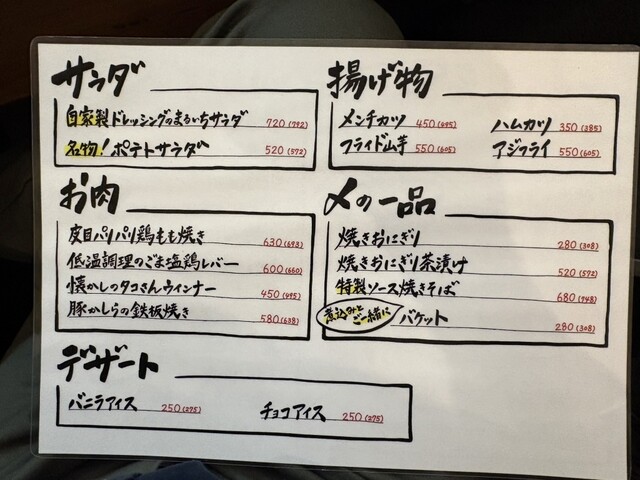 サラダ
自家製ドレッシングのまるいちサラダ 720(792)
名物!ポテトサラダ 520(572)
揚げ物
メンチカツ 450(495) ハムカツ 350(385)
フライド山芋 550(605) アジフライ 550(605)
お肉
皮目パリパリ鶏もも焼き 630(693)
低温調理のごま塩鶏レバー 600(660)
懐かしのタコさんウィンナー 450(495)
豚かしらの鉄板焼き 580(638)
〆の一品
焼きおにぎり 280(308)
焼きおにぎり茶漬け 520(572)
特製ソース焼きそば 680(748)
煮込みとご一緒に バケット 280(308)
デザート
バニラアイス 250(275) チョコアイス 250(275)